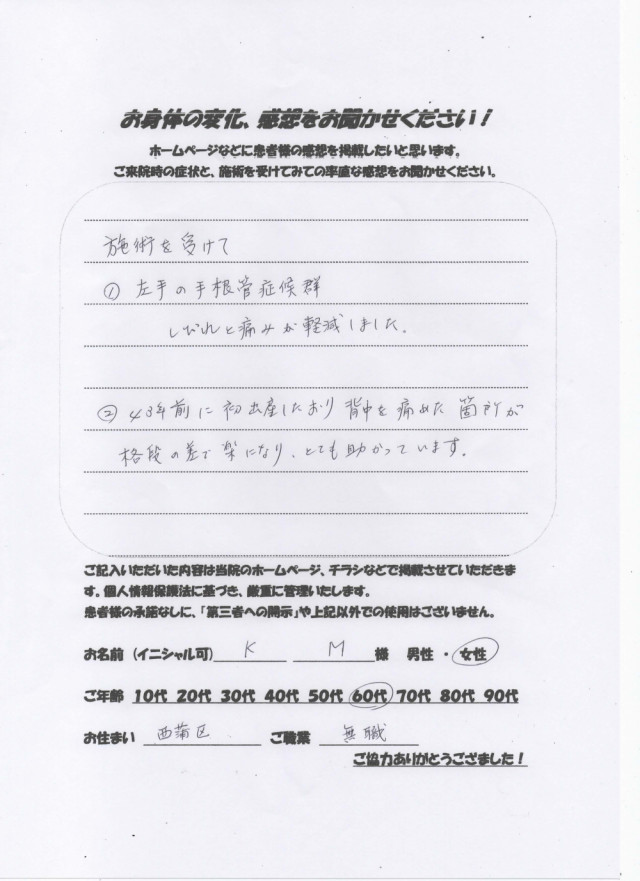 お身体の変化、感想をお聞かせください！
ホームページなどに患者様の感想を掲載したいと思います。
ご来院時の症状と、施術を受けてみての率直な感想をお聞かせください。
施術を受けて
① 左手の手根管症候群
しびれと痛みが軽減しました。
② 43年前に初出産したおり背中を痛めた箇所が
格段の差で楽になり、とても助かっています。
ご記入いただいた内容は当院のホームページ、チラシなどで掲載させていただきま
す。個人情報保護法に基づき、厳重に管理いたします。
患者様の承諾なしに、「第三者への開示」や上記以外での使用はございません。
お名前（イニシャル可） K M 様 男性 ・ 女性
ご年齢 10代 20代 30代 40代 50代 60代 70代 80代 90代
お住まい 西蒲区 ご職業 無職
ご協力ありがとうござました！